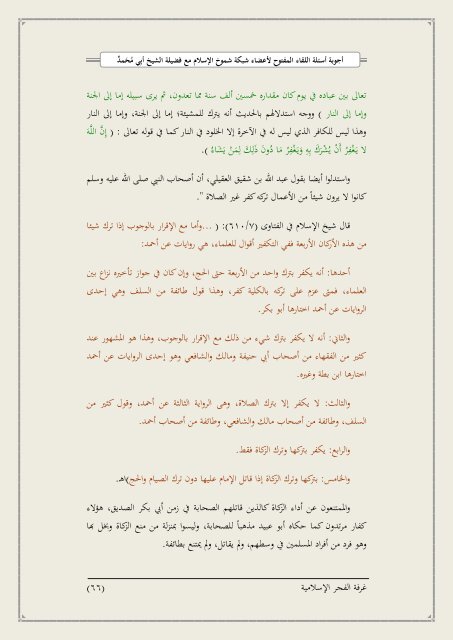 أجوبة أسئلة اللقاء المفتوح لأعضاء شبكة شموخ الإسلام مع فضيلة الشيخ أبي مُحَمدٍ
تعالى بين عباده في يوم كان مقداره خمسين ألف سنة مما تعدون، ثم يرى سبيله إما إلى الجنة
وإما إلى النار ) ووجه استدلالهم بالحديث أنه يترك للمشيئة؛ إما إلى الجنة، وإما إلى النار
وهذا ليس للكافر الذي ليس له في الآخرة إلا الخلود في النار كما في قوله تعالى : ( إِنَّ اللَّهَ
لا يَغْفِرُ أَنْ يُشْرَكَ بِهِ وَيَغْفِرُ مَا دُونَ ذَلِكَ لِمَنْ يَشَاءُ ).
واستدلوا أيضا بقول عبد الله بن شقيق العقيلي، أن أصحاب النبي صلى الله عليه وسلم
كانوا لا يرون شيئاً من الأعمال تركه كفر غير الصلاة ".
قال شيخ الإسلام في الفتاوى (٦١٠/٧): ( ...وأما مع الإقرار بالوجوب إذا ترك شيئا
من هذه الأركان الأربعة ففي التكفير أقوال للعلماء، هي روايات عن أحمد:
أحدها: أنه يكفر بترك واحد من الأربعة حتى الحج، وإن كان في جواز تأخيره نزاع بين
العلماء، فمتى عزم على تركه بالكلية كفر، وهذا قول طائفة من السلف وهي إحدى
الروايات عن أحمد اختارها أبو بكر.
والثاني: أنه لا يكفر بترك شيء من ذلك مع الإقرار بالوجوب، وهذا هو المشهور عند
كثير من الفقهاء من أصحاب أبي حنيفة ومالك والشافعي وهو إحدى الروايات عن أحمد
اختارها ابن بطة وغيره.
والثالث: لا يكفر إلا بترك الصلاة، وهى الرواية الثالثة عن أحمد، وقول كثير من
السلف، وطائفة من أصحاب مالك والشافعي، وطائفة من أصحاب أحمد.
والرابع: يكفر بتركها وترك الزكاة فقط.
والخامس: بتركها وترك الزكاة إذا قاتل الإمام عليها دون ترك الصيام والحج)اهـ.
والممتنعون عن أداء الزكاة كالذين قاتلهم الصحابة في زمن أبي بكر الصديق، هؤلاء
كفار مرتدون كما حكاه أبو عبيد مذهباً للصحابة، وليسوا بمنزلة من منع الزكاة وبخل بها
وهو فرد من أفراد المسلمين في وسطهم، ولم يقاتل، ولم يمتنع بطائفة.
غرفة الفجر الإسلامية
(٦٦)